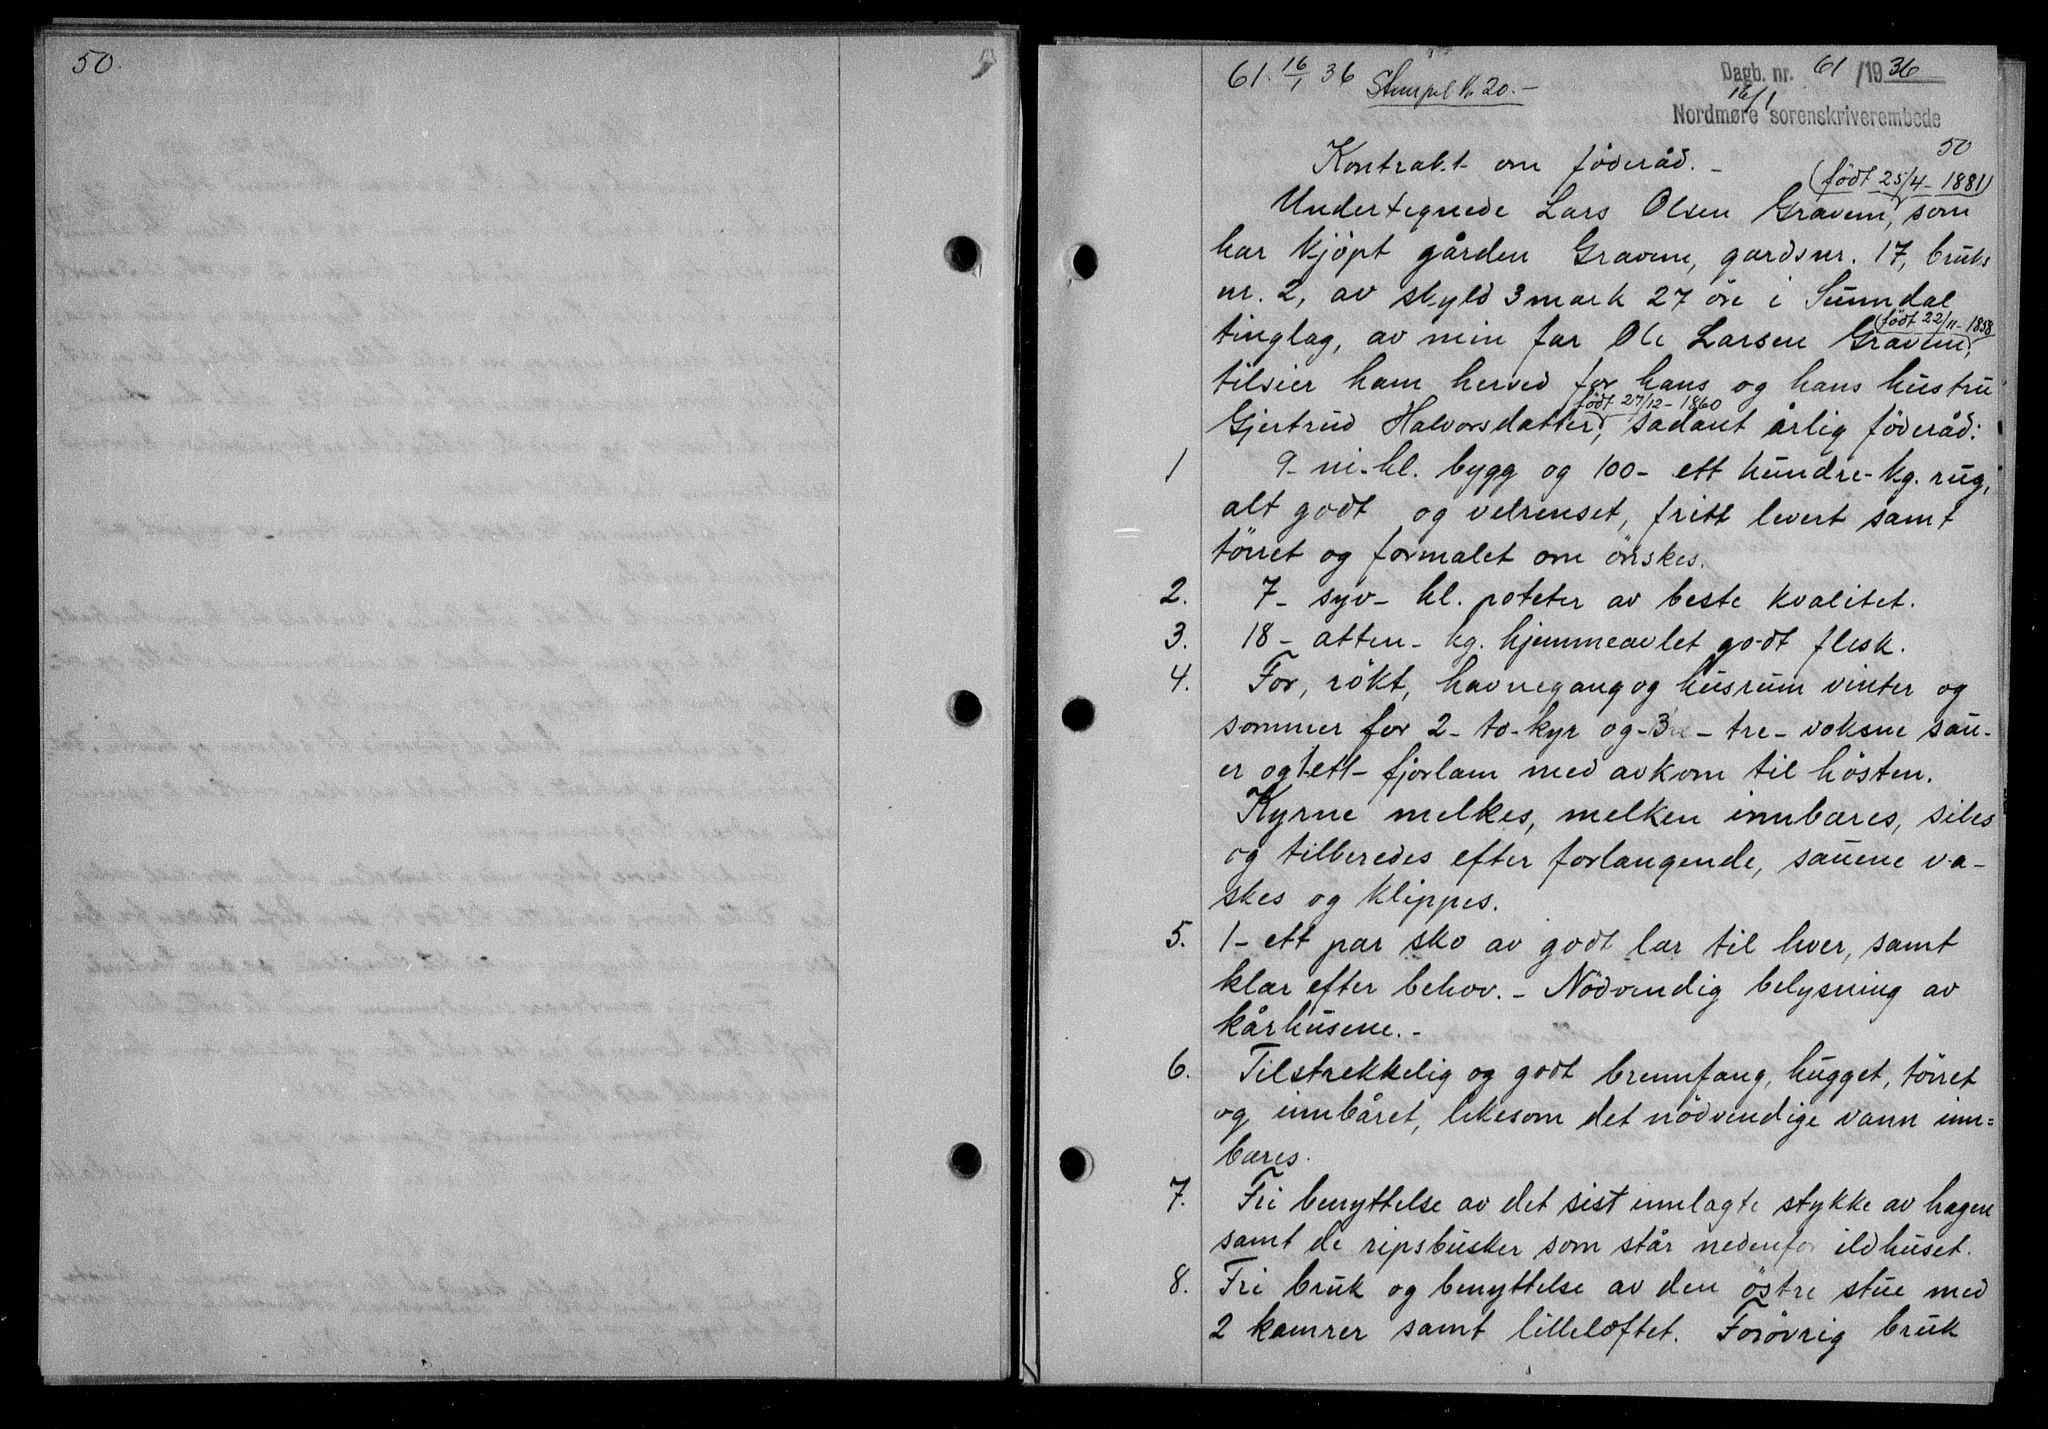 50.
61. 16/1 36 Stempel kr. 20.-
Dagb. nr. 61 /1936
16/1
Nordmøre sorenskriverembede
50
Kontrakt om föderåd. -
(født 25/4-1881)
Undertegnede Lars Olsen Gravem, som
har kjöpt gården Gravem, gardsnr. 17, bruks
nr. 2, av skyld 3 mark 27 öre i Sunndal
tinglag, av min far Ole Larsen Gravem,
(født 22/11-1858
tilsier ham herved for hans og hans hustru
født 27/12-1860
Gjertrud Halvorsdatter, sådant årlig föderåd:
1 9- ni- hl. bygg og 100- ett hundre- kg. rug,
alt godt og velrenset, fritt levert samt
törret og formalet om önskes.
2. 7- syv- hl. poteter av beste kvalitet.
3. 18- atten- kg. hjemmeavlet godt flesk.
4. For, rökt, havnegang og husrum vinter og
sommer for 2- to- kyr og- 3 - tre- voksne sau-
er og 1-ett- fjorlam med avkom til hösten.
Kyrne melkes, melken innbæres, siles
og tilberedes efter forlangende, sauene va-
skes og klippes.
5. 1- ett par sko av godt lær til hver, samt
klær efter behov. - Nödvendig belysning av
kårhusene. -
6. Tilstrekkelig og godt brennfang, hugget, törret
og innbåret, likesom det nödvendige vann inn=
bæres.
7. Fri benyttelse av det sist innlagte stykke av hagen
samt de ripsbusker som står nedenfor ildhuset.
8. Fri bruk og benyttelse av den östre stue med
2 kamrer samt lilleloftet. Forövrig bruk